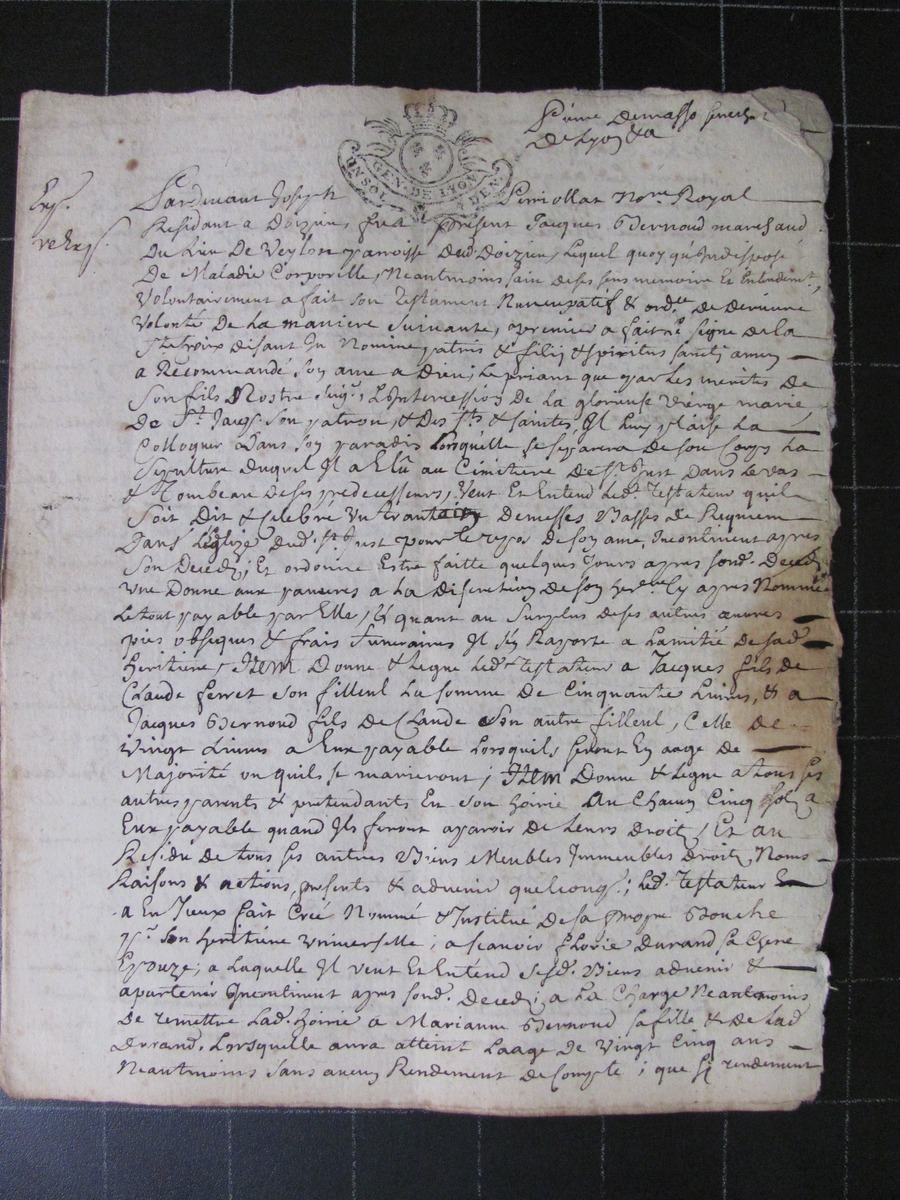 Pierre Demasso
De Lyon &a
GEN·DE LYON
UN SOL DEN·
Exp.
re Exp.
Pardevant Joseph Perriollat No.re Royal
Residant a Doizieu, fust présent Jacques Bernoud marchand
Du Lieu De Veylon parroisse dud. Doizieu, Lequel quoy qu'Indisposé
De Maladie Corporelle, Neantmoins sain de ses sens memoire Et Entendem.t,
Volontairement a fait son Testament Nuncupatif & ord.re De Derniere
Volonté De La maniere Suivante, premier a fait le signe de la
S.te Croix disant In Nomine patris & filij & spiritus sancti amen
a Recommandé son ame a Dieu, Le priant que par Les merites De
Son fils Nostre Seig.r, L'Intercession de La glorieuse vierge marie
De S.t Jacq. Son patron, & Des s.ts & saintes, Il Luy plaise La
Colloquer Dans son paradis Lorsquelle se separera De son Corps La
Sepulture Duquel Il a Elû au Cimetiere De S.t Just Dans Le vas
& Tombeau De ses predecesseurs, Veut Et Entend Led.t Testateur quil
Soit Dit & celebré un Trantain De messes Basses De Requiem
Dans L'Eglize Dud. S.t Just pour Le repos De son ame, Incontinent apres
Son Decedz; Et ordonne Estre faitte quelques Jours apres sond. Decedz
une Donne aux pauvres a La Discretion De son her.re Cy apres Nommée
Le tout payable par Elle, & quant au Surplus De ses autres œuvres
pies obseques & frais funeraires Il s'En Raporte a L'amitié De sad.
heritiere, Item Donne & Legue Led.t testateur a Jacques fils De
Claude ferret son filleul La somme De Cinquante Livres, & a
Jacques Bernoud fils De Claude Son autre filleul, Celle De
Vingt Livres a Eux payable Lorsquils seront En aage De
Majorité ou quils se marieront; Item Donne & Legue a tous ses
autres parents & pretendants En son hoirie Au Chacun Cinq sols a
Eux payable quand Ils feront aparoir De Leurs Droits, Et au
Residu De tous ses autres Biens Meubles Immeubles Droits, Noms
Raisons & actions, presents & advenir quelconq.; Led. Testateur
a En Iceux fait Créé Nommé & Institué De sa propre Bouche
p.r Son heritiere universelle; a scavoir Durand sa Chere
Epouze; a Laquelle Il veut Et Entend sesd. Biens advenir &
apartenir Incontinent apres sond. Decedz; a La Charge Neantmoins
De remettre Lad. hoirie a Marianne Bernoud sa fille & De Lad.
Durand, Lorsquelle aura atteint Laage De Vingt Cinq ans
Neantmoins Sans aucun Rendement De Compte; que si rendement